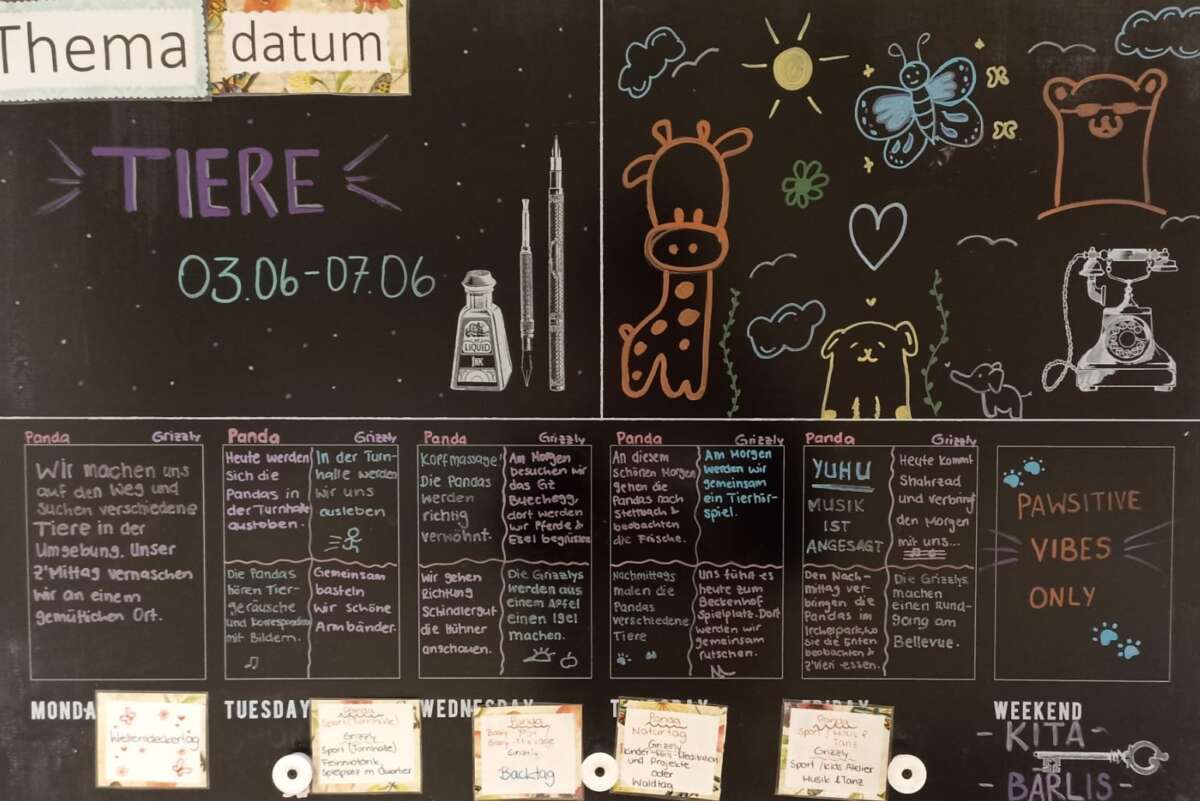 Thema
datum
TIERE
03.06-07.06
LIQUID
INK
Panda Grizzly
Wir machen uns
auf den Weg und
Suchen verschiedene
Tiere in der
Umgebung. Unser
Z'Mittag vernaschen
Wir an einem
gemütlichen Ort.
Panda
Heute werden
Sich die
Pandas in
der Turnhalle
austoben.
Grizzly
In der Turn-
halle werden
wir uns
ausleben
Die Pandas
hören Tier-
geräusche
mit Bildern.
Gemeinsam
basteln
Wir schöne
Armbänder.
Panda
Kopfmassage!
Die Pandas
werden
richtig
verwöhnt.
Grizzly
Am Morgen
besuchen wir
das Gz
Buechegg,
dort werden
wir Pferde &
Esel begrüssen
Wir gehen
Richtung
Schindlergut
die Hühner
anschauen.
Die Grizzlys
werden aus
einem Apfel
einen Igel
machen.
Panda
An diesem
schönen Morgen
gehen die
Pandas nach
Stettbach &
beobachten
die Frösche.
Grizzly
Am Morgen
werden wir
gemeinsam
ein Tierhör-
spiel.
Nachmittags
malen die
Pandas
verschiedene
Tiere
Uns führt es
heute zum
Beckenhof
Spielplatz. Dort
werden wir
gemeinsam
rutschen.
Panda
YUHU
MUSIK
IST
ANGESAGT
Grizzly
Heute kommt
Shahrzad
und verbringt
den Morgen
mit uns...
Den Nach-
mittag ver-
bringen die
Pandas im
Irchelpark, wo
Sie die Enten
beobachten &
Z'Vieri essen.
Die Grizzlys
machen
einen Rund-
gang am
Bellevue.
PAWSITIVE
VIBES
ONLY
MONDA
TUESDAY
WEDNESDAY
WEEKEND
Weltentdeckertag
Panda
Sport (Turnhalle)
Grizzly
Sport (Turnhalle)
Feinmotorik
Spielplatz im Quartier
Panda
Grizzly
Backtag
Panda
Naturtag
Grizzly
und Projekte
oder
Waldtag
Panda
Sport / Musik &
Tanz
Grizzly
Sport / Kids Atelier
Musik & Tanz
- KITA -
BÄRLIS -